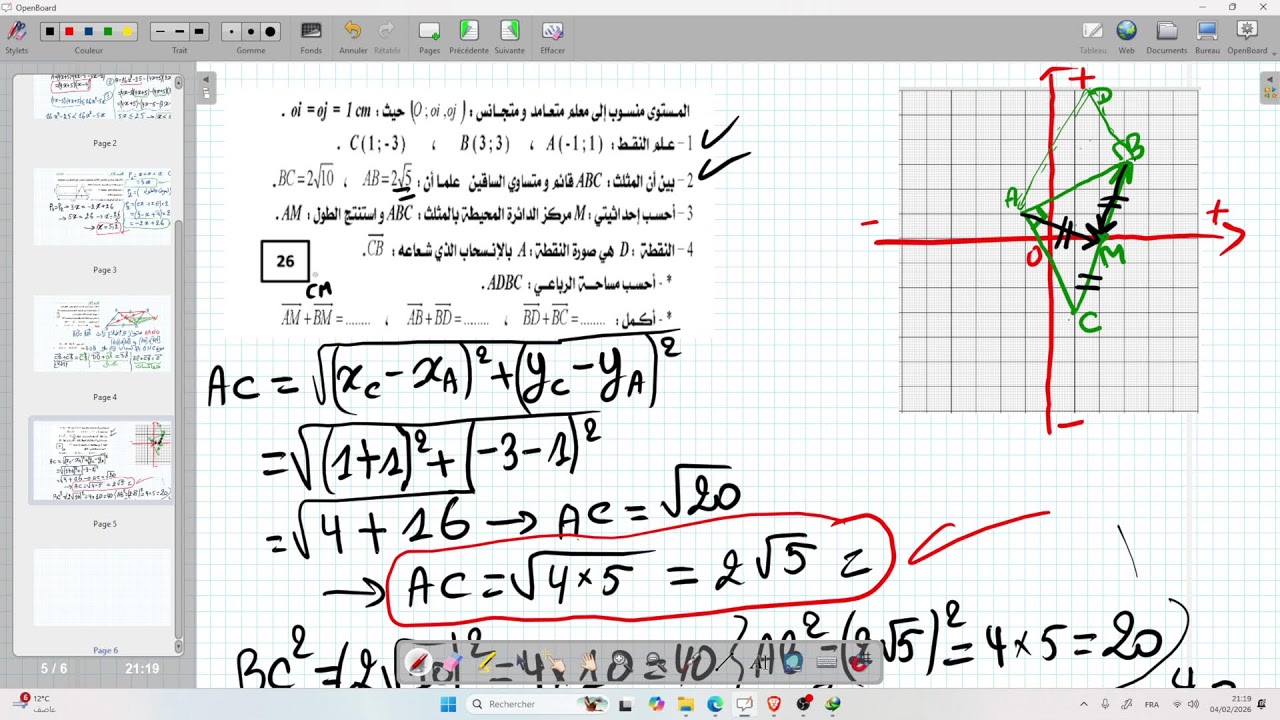 OpenBoard
Stylets Couleur Trait Gomme Fonds Annuler Rétablir Pages Précédente Suivante Effacer Tableau Web Documents Bureau OpenBoard
Page 2
Page 3
Page 4
Page 5
Page 6
5 / 6 21:19
المستوى منسوب إلى معلم متعامد و متجانس : (O ; oi , oj) حيث : oi = oj = 1 cm .
1 – علم النقط : A(-1 ; 1) ، B(3 ; 3) ، C(1 ; -3) .
2 – بين أن المثلث : ABC قائم و متساوي الساقين علما أن : AB = 2√5 ، BC = 2√10 .
3 – أحسب إحداثيتي : M مركز الدائرة المحيطة بالمثلث : ABC و استنتج الطول : AM .
4 – النقطة : D هي صورة النقطة : A بالإنسحاب الذي شعاعه : CB .
* – أحسب مساحة الرباعي : ADBC .
* – أكمل : BD + BC = ........ ، AB + BD = ........ ، AM + BM = ........
26
cm
+
D
B
A
-
+
O
M
C
-
AC = √(x_C - x_A)² + (y_C - y_A)²
= √(1+1)² + (-3-1)²
= √4 + 16 → AC = √20
→ AC = √4×5 = 2√5
BC² = (2√10)² = 4×10 = 40
AB² = (2√5)² = 4×5 = 20
6
12°C
عاصف
Rechercher
FRA
21:19
04/02/2026